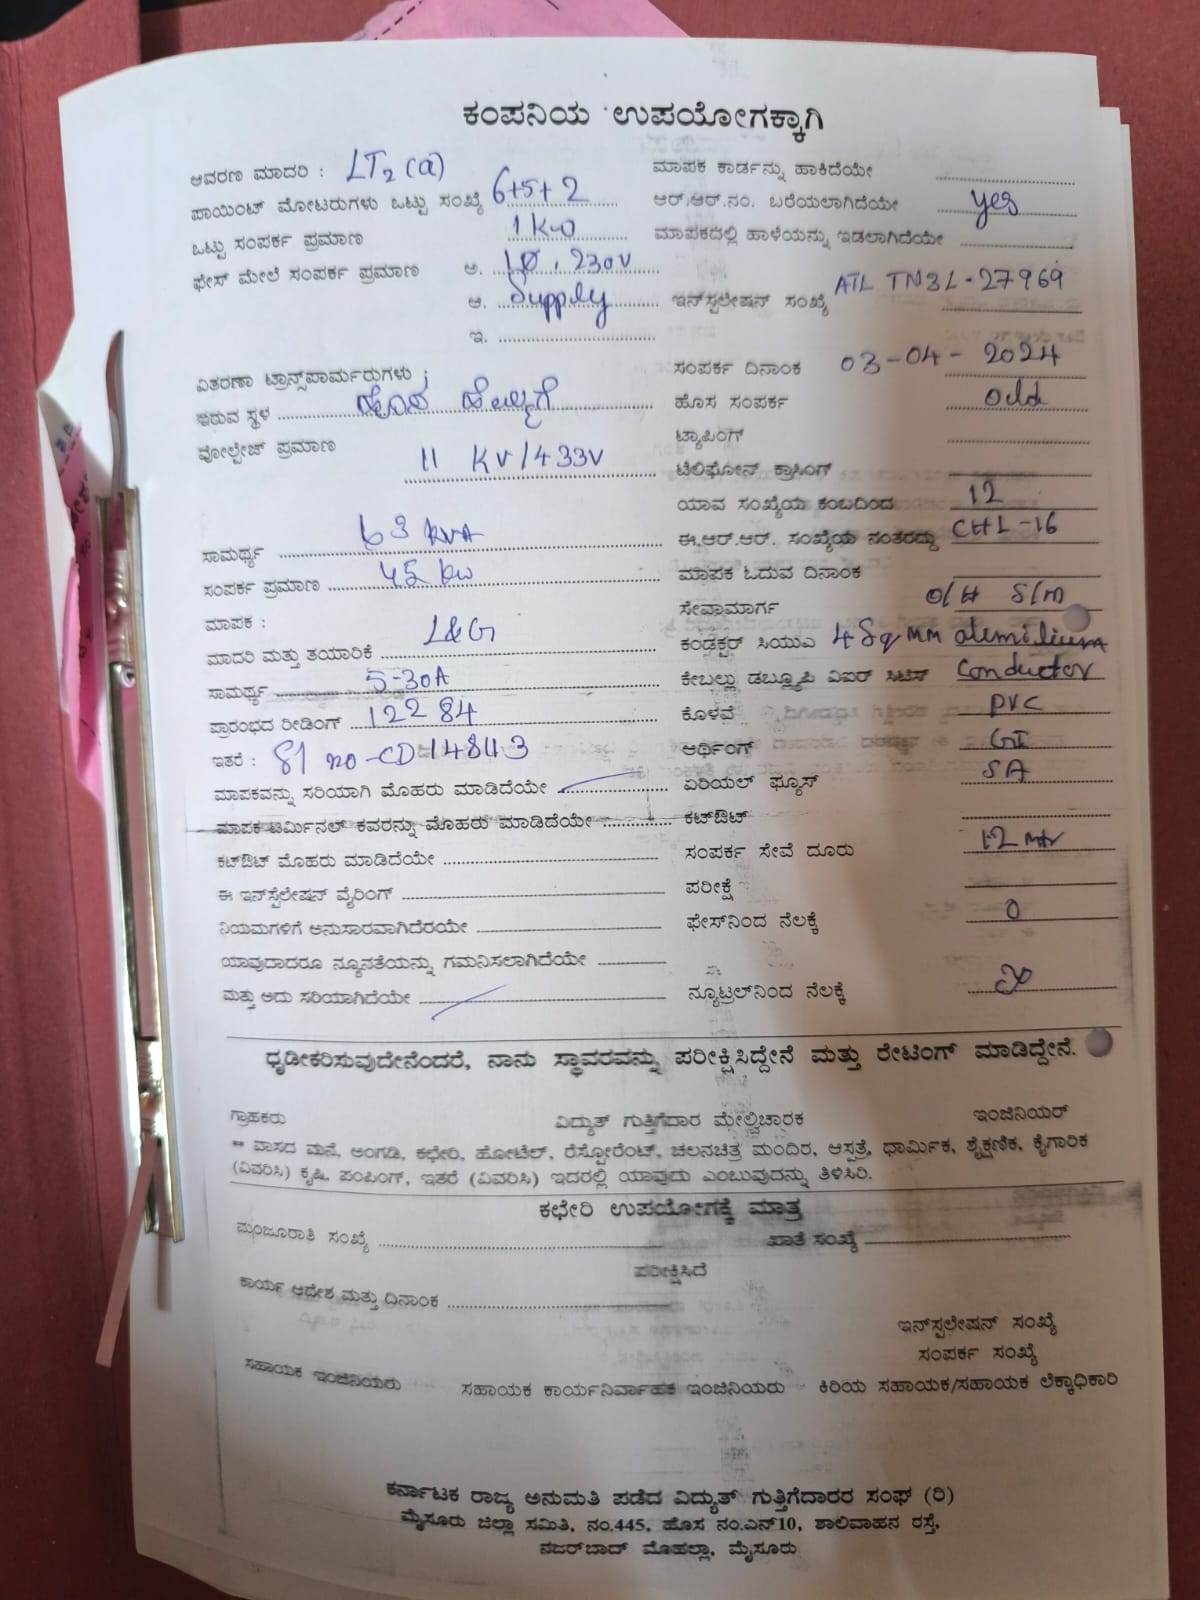 ಕಂಪನಿಯ ಉಪಯೋಗಕ್ಕಾಗಿ
ಆವರಣ ಮಾದರಿ : LT2 (a)
ಪಾಯಿಂಟ್ ಮೋಟರುಗಳು ಒಟ್ಟು ಸಂಖ್ಯೆ 6+5+2
ಒಟ್ಟು ಸಂಪರ್ಕ ಪ್ರಮಾಣ 1 KW
ಫೇಸ್ ಮೇಲೆ ಸಂಪರ್ಕ ಪ್ರಮಾಣ ಅ. 1Ø, 230V
ಆ. Supply
ಇ.
ಮಾಪಕ ಕಾರ್ಡನ್ನು ಹಾಕಿದೆಯೇ
ಆರ್.ಆರ್.ನಂ. ಬರೆಯಲಾಗಿದೆಯೇ yes
ಮಾಪಕದಲ್ಲಿ ಹಾಳೆಯನ್ನು ಇಡಲಾಗಿದೆಯೇ
ಇನ್‌ಸ್ಟಲೇಷನ್ ಸಂಖ್ಯೆ ATL TN3L-27969
ವಿತರಣಾ ಟ್ರಾನ್ಸ್‌ಪಾರ್ಮರುಗಳು ;
ಇರುವ ಸ್ಥಳ ಹೊಸ
ವೋಲ್ಟೇಜ್ ಪ್ರಮಾಣ 11 KV/433V
ಸಾಮರ್ಥ್ಯ 63 KVA
ಸಂಪರ್ಕ ಪ್ರಮಾಣ 45 kw
ಮಾಪಕ :
ಮಾದರಿ ಮತ್ತು ತಯಾರಿಕೆ L&G
ಸಾಮರ್ಥ್ಯ 5-30A
ಪ್ರಾರಂಭದ ರೀಡಿಂಗ್ 12284
ಇತರೆ : Sl no-CD 14843
ಮಾಪಕವನ್ನು ಸರಿಯಾಗಿ ಮೊಹರು ಮಾಡಿದೆಯೇ
ಮಾಪಕ ಟರ್ಮಿನಲ್ ಕವರನ್ನು ಮೊಹರು ಮಾಡಿದೆಯೇ
ಕಟ್‌ಔಟ್ ಮೊಹರು ಮಾಡಿದೆಯೇ
ಈ ಇನ್‌ಸ್ಟೆಲೇಷನ್ ವೈರಿಂಗ್
ನಿಯಮಗಳಿಗೆ ಅನುಸಾರವಾಗಿದೆರಯೇ
ಯಾವುದಾದರೂ ನ್ಯೂನತೆಯನ್ನು ಗಮನಿಸಲಾಗಿದೆಯೇ
ಮತ್ತು ಅದು ಸರಿಯಾಗಿದೆಯೇ
ಸಂಪರ್ಕ ದಿನಾಂಕ 03-04-2024
ಹೊಸ ಸಂಪರ್ಕ Old
ಟ್ಯಾಪಿಂಗ್
ಟೆಲಿಫೋನ್ ಕ್ರಾಸಿಂಗ್
ಯಾವ ಸಂಖ್ಯೆಯ ಕಂಬದಿಂದ 12
ಈ.ಆರ್.ಆರ್. ಸಂಖ್ಯೆಯ ನಂತರದ್ದು CHL-16
ಮಾಪಕ ಓದುವ ದಿನಾಂಕ
ಸೇವಾಮಾರ್ಗ O/H S/m
ಕಂಡಕ್ಟರ್ ಸಿಯುಎ 4 Sq MM alemilium
ಕೇಬಲ್ಲು ಡಬ್ಲ್ಯೂಪಿ ವಿಐರ್ ಸಿಟಿಸ್ Conductor
ಕೊಳವೆ PVC
ಆರ್ಥಿಂಗ್ GI
ಏರಿಯಲ್ ಫ್ಯೂಸ್ SA
ಕಟ್‌ಔಟ್
ಸಂಪರ್ಕ ಸೇವೆ ದೂರು 12 mtr
ಪರೀಕ್ಷೆ
ಫೇಸ್‌ನಿಂದ ನೆಲಕ್ಕೆ 0
ನ್ಯೂಟ್ರಲ್‌ನಿಂದ ನೆಲಕ್ಕೆ
ಧೃಡೀಕರಿಸುವುದೇನೆಂದರೆ, ನಾನು ಸ್ಥಾವರವನ್ನು ಪರೀಕ್ಷಿಸಿದ್ದೇನೆ ಮತ್ತು ರೇಟಿಂಗ್ ಮಾಡಿದ್ದೇನೆ.
ಗ್ರಾಹಕರು ವಿದ್ಯುತ್ ಗುತ್ತಿಗೆದಾರ ಮೇಲ್ವಿಚಾರಕ ಇಂಜಿನಿಯರ್
** ವಾಸದ ಮನೆ, ಅಂಗಡಿ, ಕಛೇರಿ, ಹೋಟೆಲ್, ರೆಸ್ಟೋರೆಂಟ್, ಚಲನಚಿತ್ರ ಮಂದಿರ, ಆಸ್ಪತ್ರೆ, ಧಾರ್ಮಿಕ, ಶೈಕ್ಷಣಿಕ, ಕೈಗಾರಿಕ
(ವಿವರಿಸಿ) ಕೃಷಿ, ಪಂಪಿಂಗ್, ಇತರೆ (ವಿವರಿಸಿ) ಇದರಲ್ಲಿ ಯಾವುದು ಎಂಬುವುದನ್ನು ತಿಳಿಸಿರಿ.
ಕಛೇರಿ ಉಪಯೋಗಕ್ಕೆ ಮಾತ್ರ
ಮಂಜೂರಾತಿ ಸಂಖ್ಯೆ ಖಾತೆ ಸಂಖ್ಯೆ
ಪರೀಕ್ಷಿಸಿದೆ
ಕಾರ್ಯ ಆದೇಶ ಮತ್ತು ದಿನಾಂಕ
ಇನ್‌ಸ್ಟಲೇಷನ್ ಸಂಖ್ಯೆ
ಸಂಪರ್ಕ ಸಂಖ್ಯೆ
ಸಹಾಯಕ ಇಂಜಿನಿಯರು ಸಹಾಯಕ ಕಾರ್ಯನಿರ್ವಾಹಕ ಇಂಜಿನಿಯರು ಕಿರಿಯ ಸಹಾಯಕ/ಸಹಾಯಕ ಲೆಕ್ಕಾಧಿಕಾರಿ
ಕರ್ನಾಟಕ ರಾಜ್ಯ ಅನುಮತಿ ಪಡೆದ ವಿದ್ಯುತ್ ಗುತ್ತಿಗೆದಾರರ ಸಂಘ (ರಿ)
ಮೈಸೂರು ಜಿಲ್ಲಾ ಸಮಿತಿ, ನಂ.445, ಹೊಸ ನಂ.ಎನ್10, ಶಾಲಿವಾಹನ ರಸ್ತೆ,
ನಜರ್‌ಬಾದ್ ಮೊಹಲ್ಲಾ, ಮೈಸೂರು